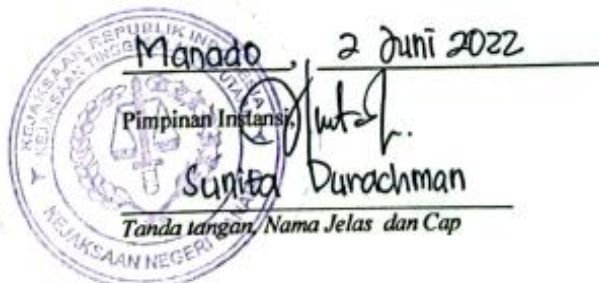 Manado, 2 Juni 2022
Pimpinan Instansi,
Sunita Durachman
Tanda tangan, Nama Jelas dan Cap
KEJAKSAAN REPUBLIK INDONESIA
KEJAKSAAN TINGGI
KEJAKSAAN NEGERI